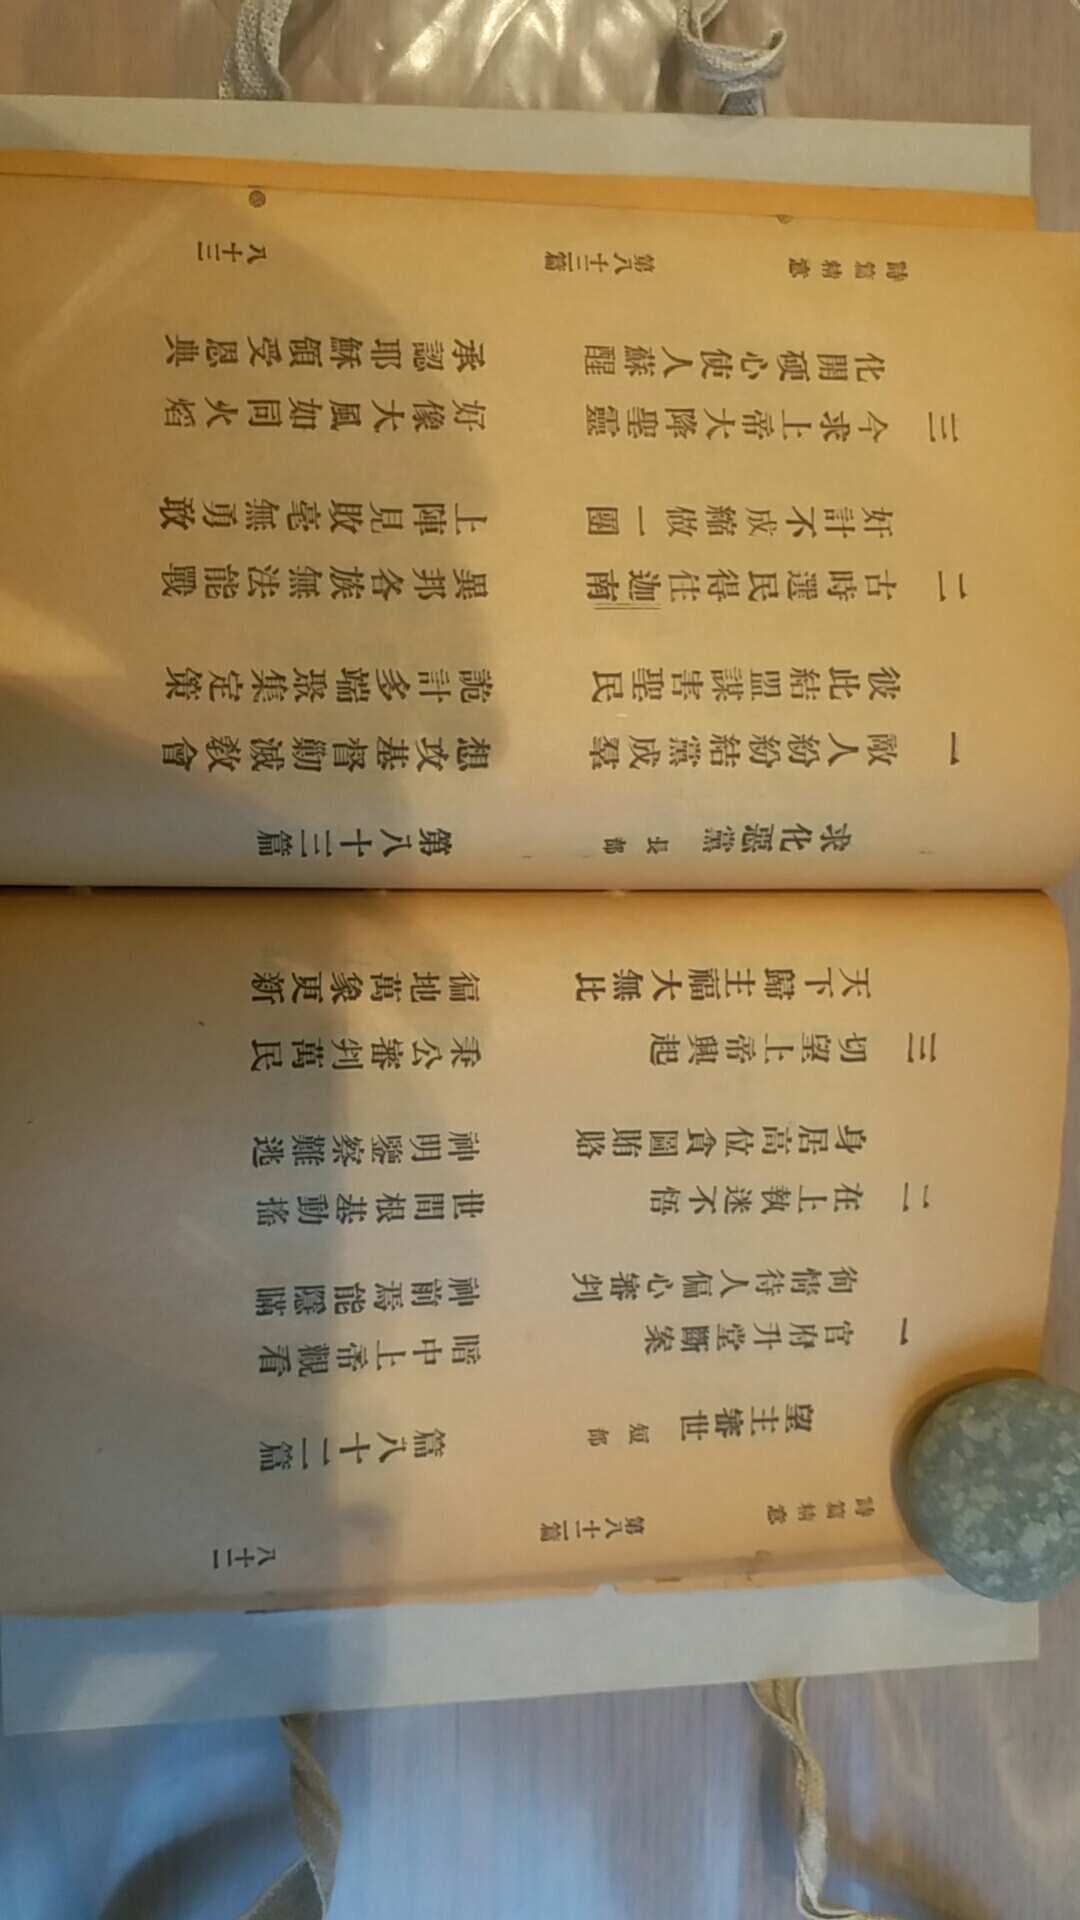 詩篇精意 第八十二篇 八十二
望主審世 短部 篇八十二篇
一 官府升堂斷案 暗中上帝觀看
徇情待人偏心審判 神前焉能隱瞞
二 在上執迷不悟 世間根基動搖
身居高位貪圖賄賂 神明鑒察難逃
三 切望上帝興起 秉公審判萬民
天下歸主福大無比 徧地萬象更新
求化惡黨 長部 第八十三篇
一 敵人紛紛結黨成羣 想攻基督勦滅敎會
彼此結盟謀害聖民 詭計多端聚集定策
二 古時選民得住迦南 異邦各族無法能戰
奸計不成縮做一團 上陣見敗毫無勇敢
三 今求上帝大降聖靈 好像大風如同火焰
化開硬心使人蘇醒 承認耶穌領受恩典
詩篇精意 第八十三篇 八十三